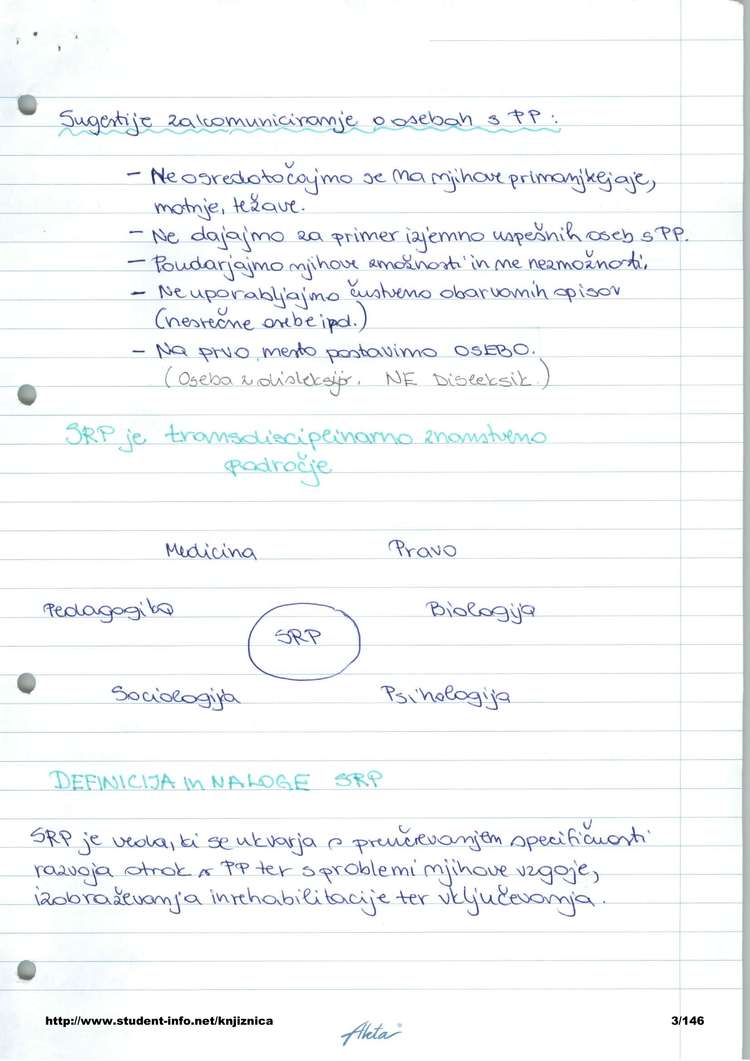 Sugestije za komuniciranje o osebah s PP:
- Ne osredotočajmo se na njihove primanjkljaje,
motnje, težave.
- Ne dajajmo za primer izjemno uspešnih oseb s PP.
- Poudarjajmo njihove zmožnosti in ne nezmožnosti.
- Ne uporabljajmo čustveno obarvanih opisov
(nesrečne osebe ipd.)
- Na prvo mesto postavimo OSEBO.
(Oseba z disleksijo. NE Disleksik.)
SRP je transdisciplinarno znanstveno
področje
Medicina Pravo
Pedagogika Biologija
SRP
Sociologija Psihologija
DEFINICIJA in NALOGE SRP
SRP je veda, ki se ukvarja s preučevanjem specifičnosti
razvoja otrok s PP ter s problemi njihove vzgoje,
izobraževanja in rehabilitacije ter vključevanja.
http://www.student-info.net/knjiznica 3/146
Akta